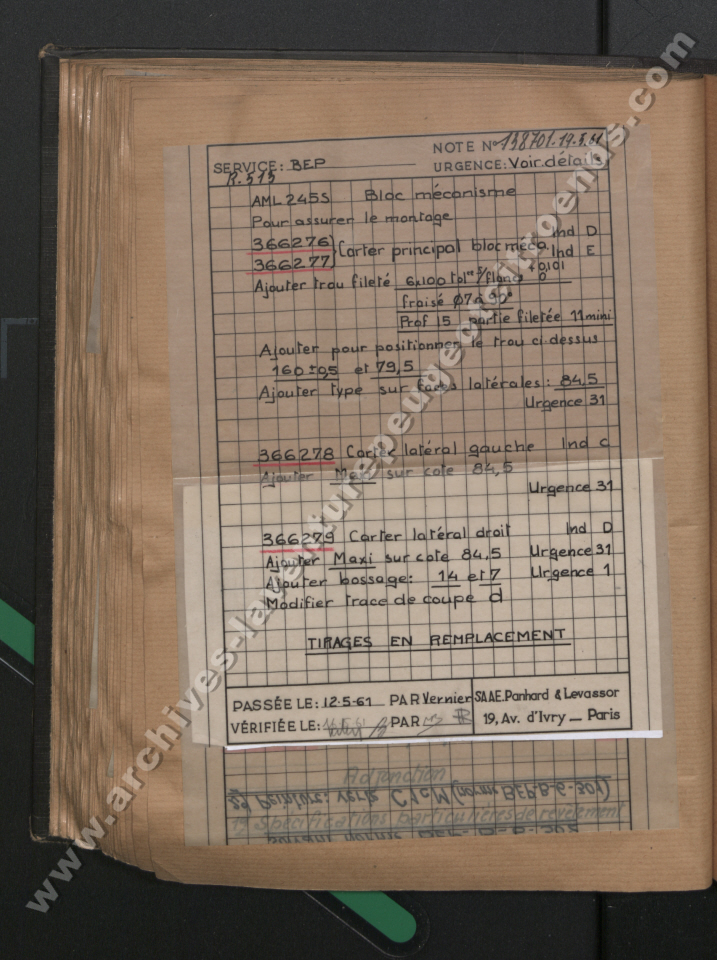 NOTE N° 138701.17.5.61
SERVICE: BEP URGENCE: Voir détails
R.515
AML 245S Bloc mécanisme
Pour assurer le montage
366276 Carter principal bloc méca. Ind D
366277 Ind E
Ajouter trou fileté 6x100 +0,101 0
fraisé Ø7 à 90°
Prof 15 partie filetée 11 mini
Ajouter pour positionner le trou ci-dessus
160 ±0,5 et 79,5
Ajouter type sur faces latérales: 84,5
Urgence 31
366278 Carter latéral gauche Ind C
Ajouter Maxi sur cote 84,5
Urgence 31
366279 Carter latéral droit Ind D
Ajouter Maxi sur cote 84,5 Urgence 31
Ajouter bossage: 14 et 7 Urgence 1
Modifier trace de coupe d
TIRAGES EN REMPLACEMENT
PASSÉE LE: 12-5-61 PAR Vernier
VÉRIFIÉE LE: PAR
SAAE. Panhard & Levassor
19, Av. d'Ivry _ Paris
Adjonction
2°) Peinture: verte C1cM (norme BEP.B-6-301)
1°) Spécifications particulières de revêtement
suivant norme BEP-B-6-302
www.archives-laventurepeugeotcitroends.com